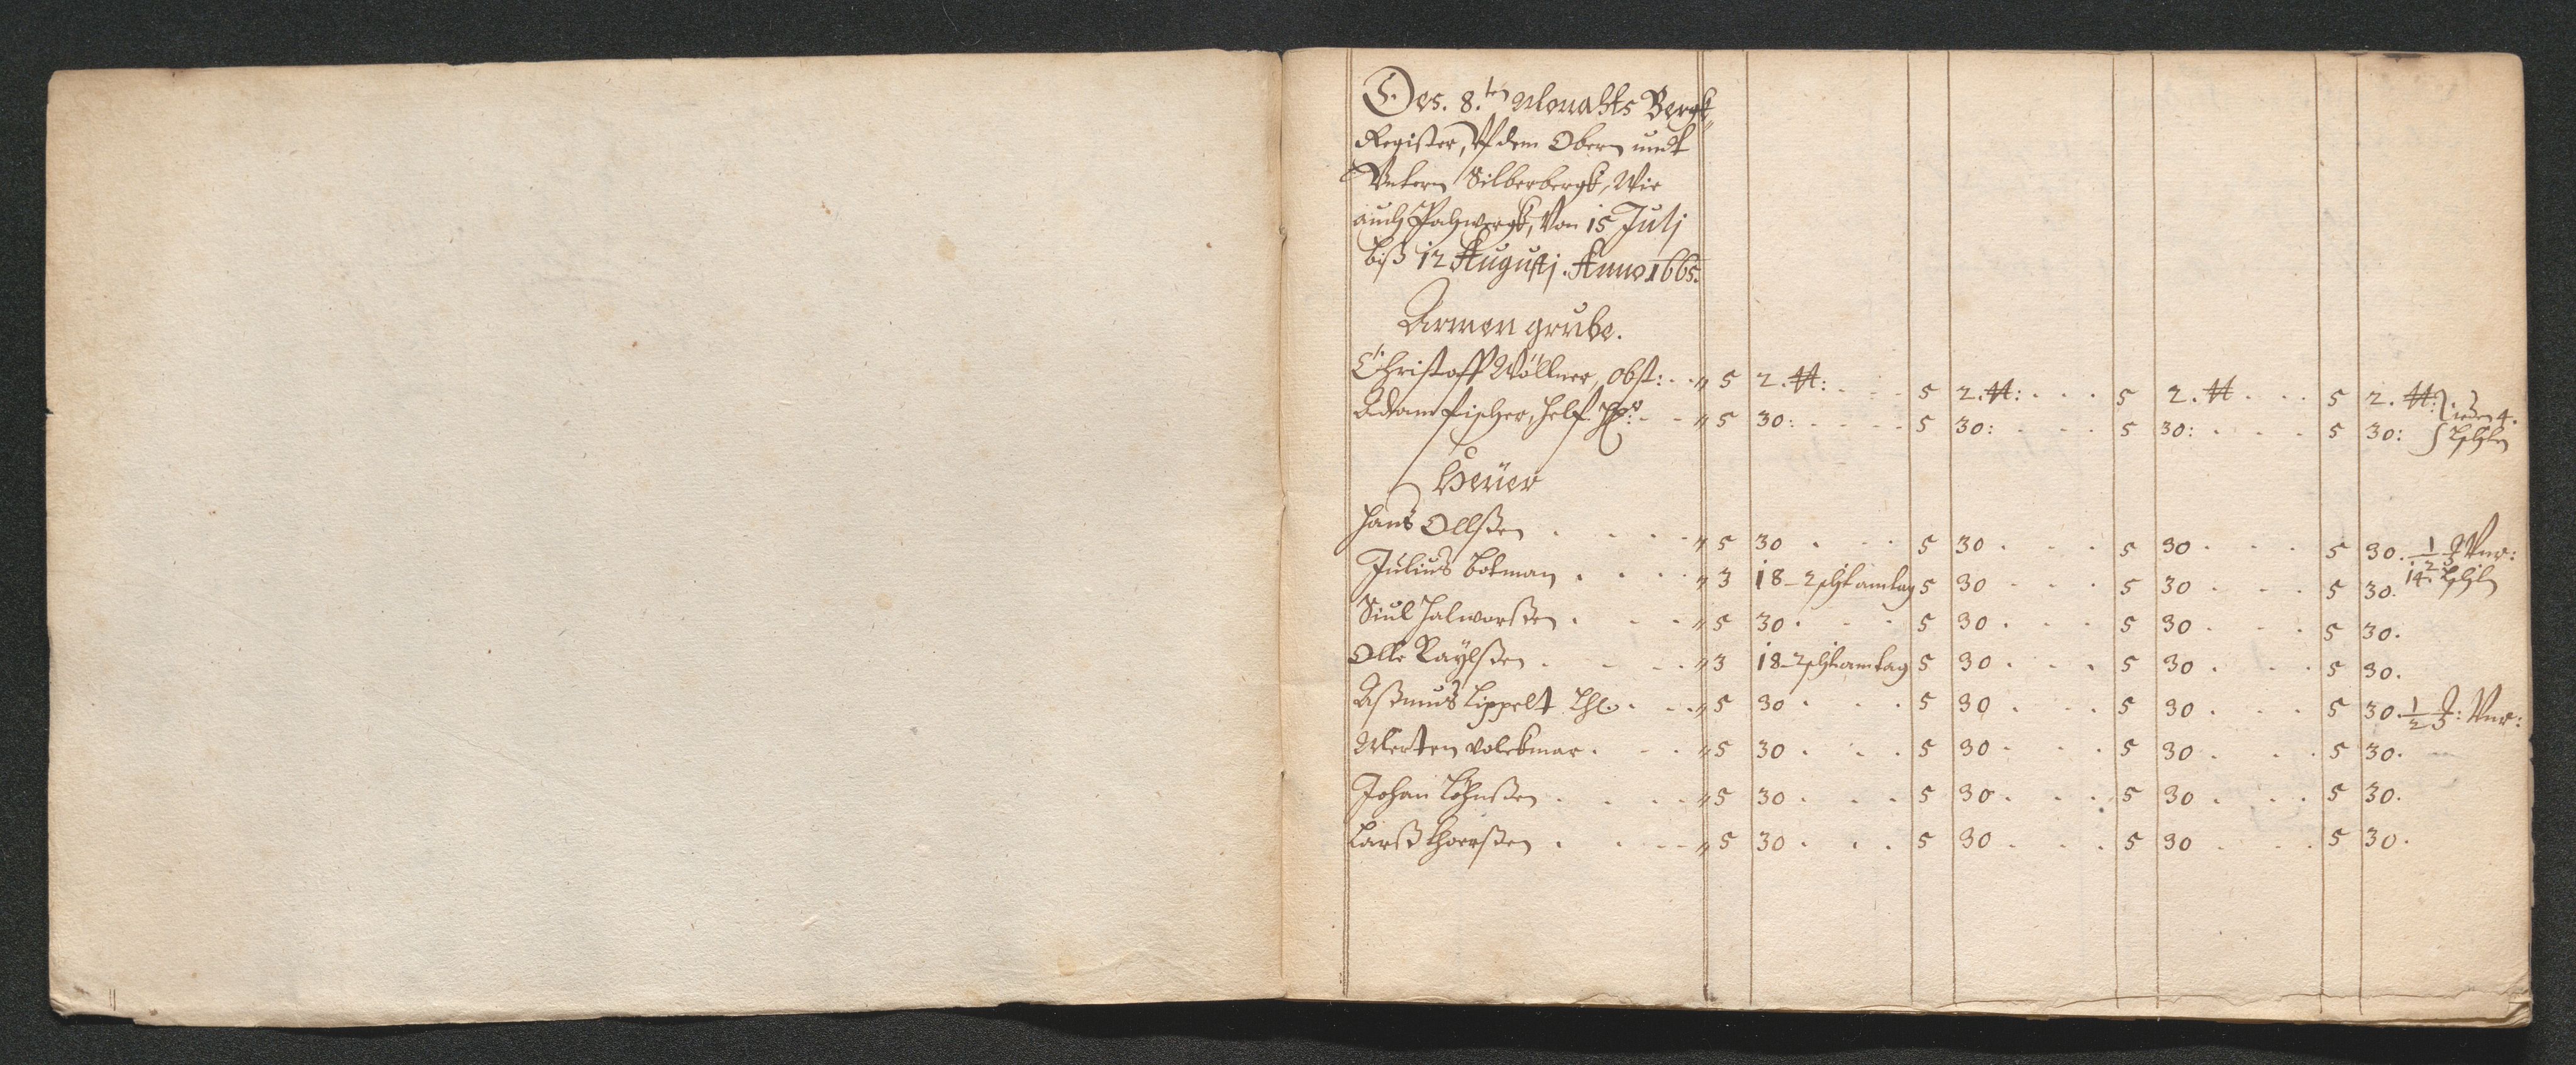 Des. 8.ten Monahts Bergk„
Register, Vf dem Obern undt
Vntern Silberbergk, Wie
auch Pahwergk, Von 15 Julj
biß 12 Augustj. Anno 1665.
Armen grube.
Christoff Wöllner, obst: „ 5 2. 5 2. 5 2. 5 2. ieden 4.
Adam fischer, helf. „ 5 30: 5 30: 5 30: 5 30:
Heüer
Hans Ollßen „ 5 30 5 30 5 30 5 30. 1/2
Julius botman „ 3 18-2 schl amtag 5 30 5 30 5 30. 14.
Siul Halworßen „ 5 30 5 30 5 30 5 30.
Olle Raÿlßen „ 3 18-2 schl amtag 5 30 5 30 5 30.
Aßmus Lippelt „ 5 30 5 30 5 30 5 30. 1/2
Merten volckmar „ 5 30 5 30 5 30 5 30.
Johan Löhnßen „ 5 30 5 30 5 30 5 30.
Larß thoerßen „ 5 30 5 30 5 30 5 30.